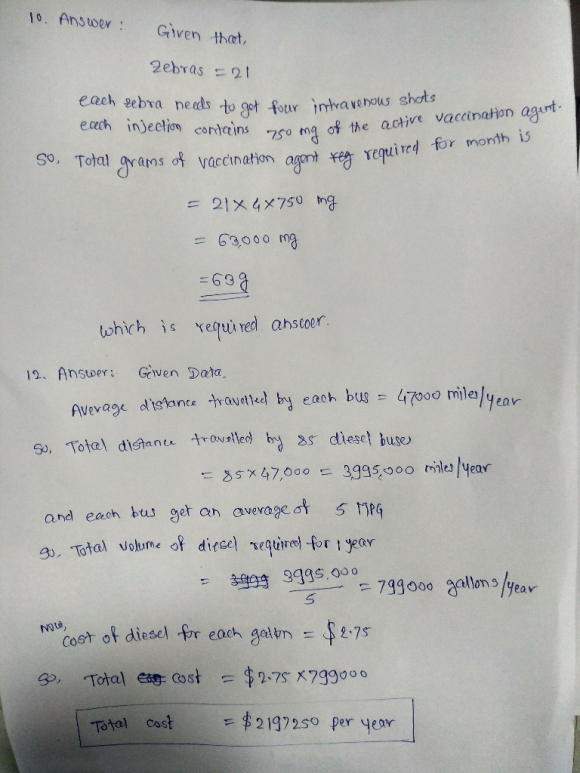 10. Answer :
Given that,
Zebras = 21
each zebra needs to get four intravenous shots
each injection contains 750 mg of the active vaccination agent.
So, Total grams of vaccination agent required for month is
= 21 × 4 × 750 mg
= 63,000 mg
= 63g
which is required answer.
12. Answer: Given Data,
Average distance travelled by each bus = 47000 miles/year
So, Total distance travelled by 85 diesel buses
= 85 × 47,000 = 3,995,000 miles/year
and each bus get an average of 5 MPG
So, Total volume of diesel required for 1 year
= 3995,000 / 5 = 799000 gallons/year
Now,
cost of diesel for each gallon = $2.75
So, Total cost = $2.75 × 799000
Total cost = $2197250 per year